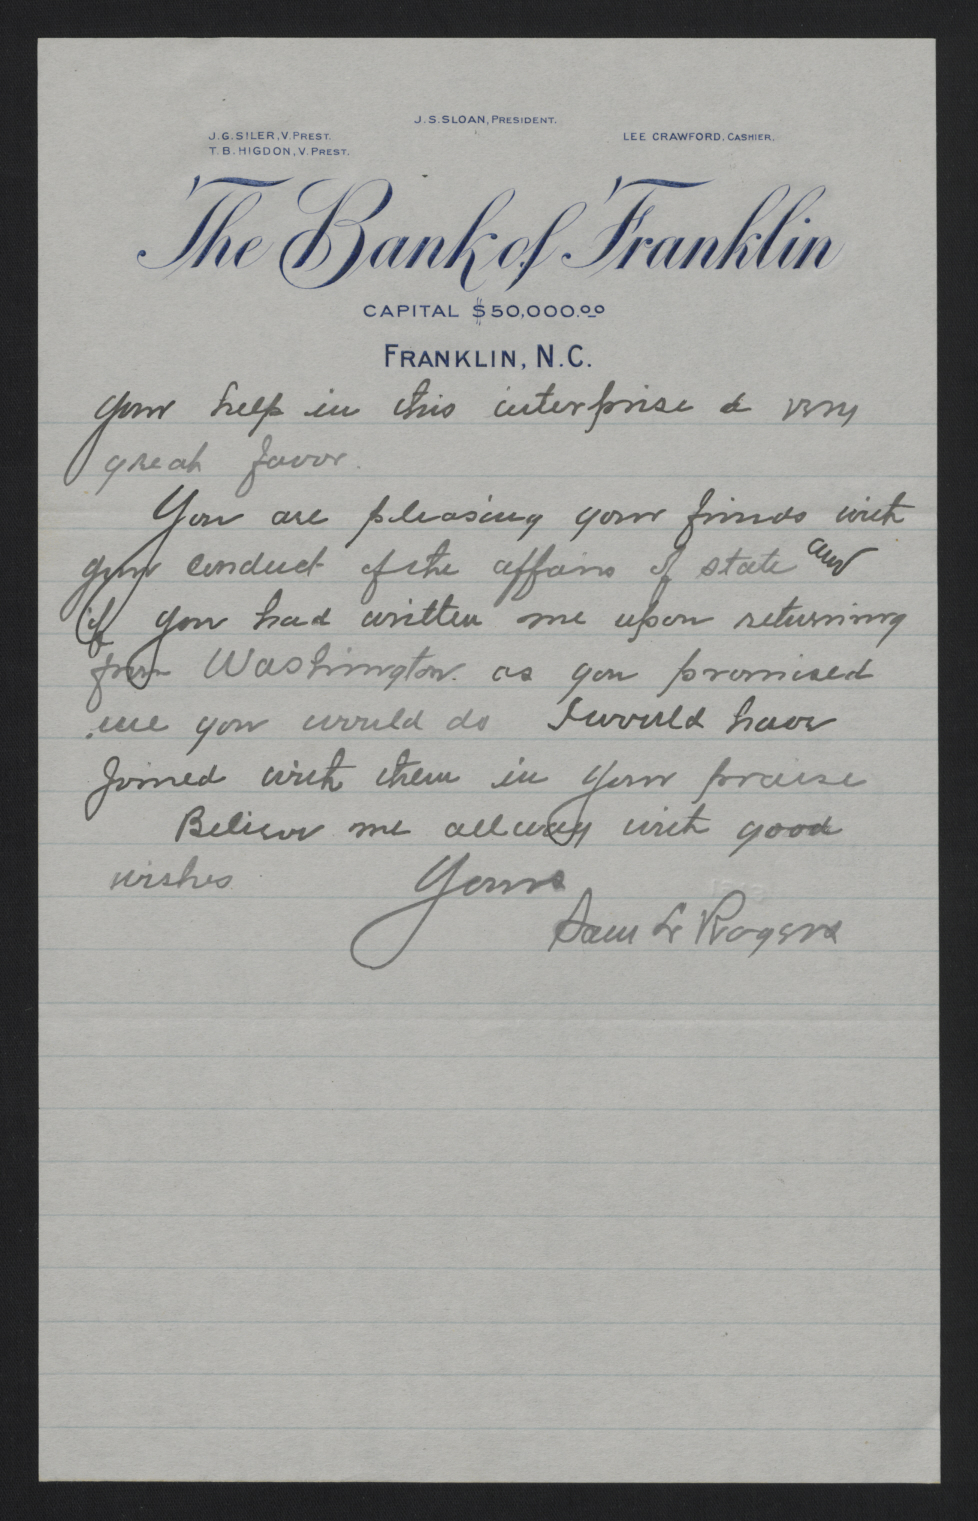 J.S. SLOAN, PRESIDENT.
J.G. SILER, V. PREST.
T.B. HIGDON, V. PREST.
LEE CRAWFORD, CASHIER.
The Bank of Franklin
CAPITAL $50,000.00
FRANKLIN, N.C.
your help in this interprise a very
great favor.
You are pleasing your friends with
your conduct of the affairs of state and
if you had written me upon returning
from Washington as you promised
me you would do I would have
Joined with them in your praise
Believe me allway with good
wishes Yours
Sam L Rogers